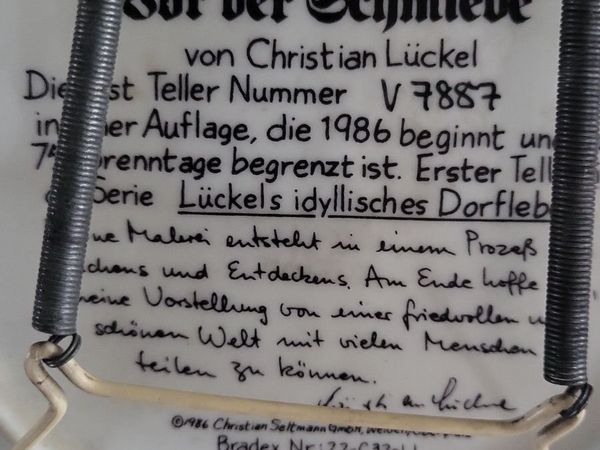 Vor der Schmiede
von Christian Lückel
Die st Teller Nummer V 7887
in er Auflage, die 1986 beginnt un
7 Brenntage begrenzt ist. Erster Tell
Serie Lückels idyllisches Dorfleb
ne Malerei entsteht in einem Prozeß
chens und Entdeckens. Am Ende hoffe
meine Vorstellung von einer friedvollen u
schönen Welt mit vielen Menschen
teilen zu können.
©1986 Christian Seltmann GmbH,
Bradex Nr: